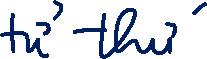 tử thứ